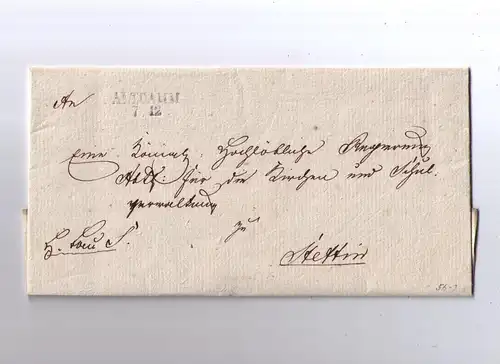 ALTDAMM
7 12
An
Eine Königl: Hochlöbliche Regierung
Abth: für die Kirchen und Schul-
verwaltung
zu
Stettin